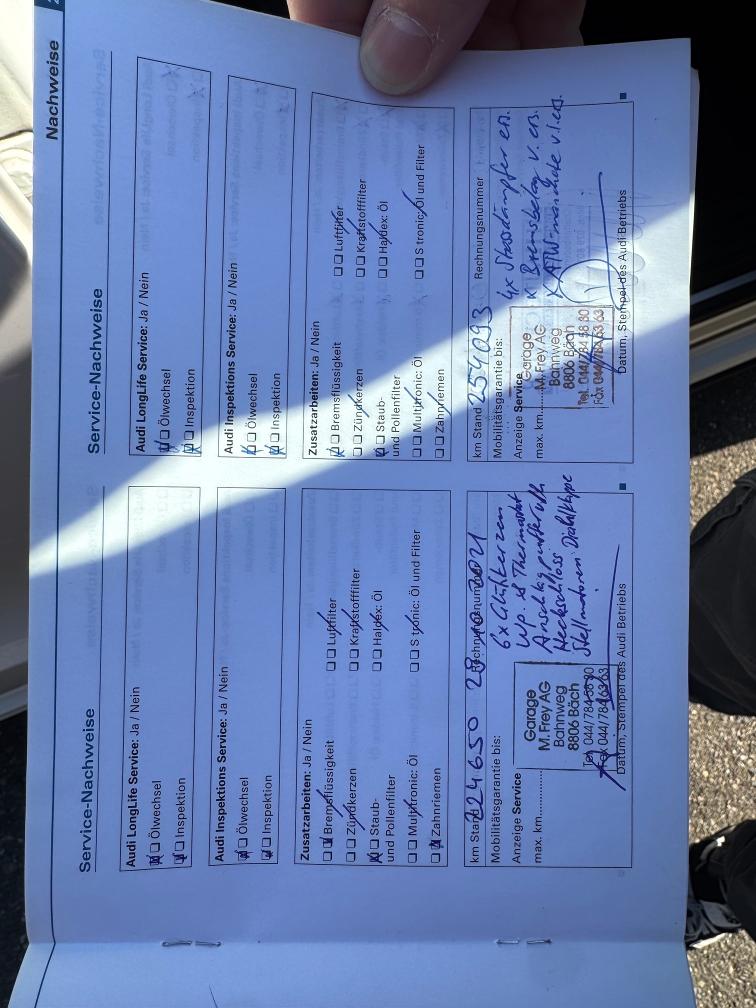 Nachweise
Service-Nachweise
Audi LongLife Service: Ja / Nein
Ölwechsel
Inspektion
Audi Inspektions Service: Ja / Nein
Ölwechsel
Inspektion
Zusatzarbeiten: Ja / Nein
Bremsflüssigkeit
Luftfilter
Zündkerzen
Kraftstofffilter
Staub-
und Pollenfilter
Haldex: Öl
Multitronic: Öl
S tronic: Öl und Filter
Zahnriemen
km Stand 224650
Rechnungsnummer
Mobilitätsgarantie bis:
6x Glühkerzen
Wp. & Thermostat
Heckschloss
Stellmotoren
Anzeige Service
max. km
Garage
M. Frey AG
Bahnweg
8806 Bäch
Tel. 044/784 38 80
Fax 044/784 63 63
Datum, Stempel des Audi Betriebs
Service-Nachweise
Audi LongLife Service: Ja / Nein
Ölwechsel
Inspektion
Audi Inspektions Service: Ja / Nein
Ölwechsel
Inspektion
Zusatzarbeiten: Ja / Nein
Bremsflüssigkeit
Luftfilter
Zündkerzen
Kraftstofffilter
Staub-
und Pollenfilter
Haldex: Öl
Multitronic: Öl
S tronic: Öl und Filter
Zahnriemen
km Stand 254093
Rechnungsnummer
Mobilitätsgarantie bis:
4x Stossdämpfer ers.
Bremsbelag v. ers.
Anzeige Service
max. km
Garage
M. Frey AG
Bahnweg
8806 Bäch
Tel. 044/784 38 80
Fax 044/784 63 63
Datum, Stempel des Audi Betriebs